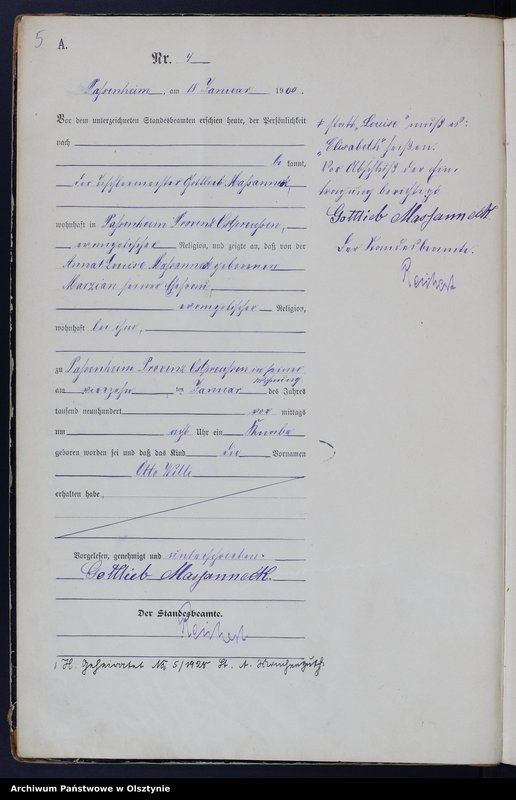 5
A.
Nr. 4
Passenheim, am 18 Januar 1900.
Vor dem unterzeichneten Standesbeamten erschien heute, der Persönlichkeit
nach
be kannt,
der Tischlermeister Gottlieb Massanneck,
wohnhaft in Passenheim Provinz Ostpreussen,
evangelischer Religion, und zeigte an, daß von der
Louise Massanneck geborenen
Marzian seiner Ehefrau,
evangelischer Religion,
wohnhaft bei ihm,
zu Passenheim Provinz Ostpreussen in seiner
Wohnung
am vierzehn ten Januar des Jahres
tausend neunhundert vor mittags
um acht Uhr ein Knabe
geboren worden sei und daß das Kind die Vornamen
Otto Willi
erhalten habe,
Vorgelesen, genehmigt und unterschrieben.
Gottlieb Massanneck.
Der Standesbeamte.
Reichert
statt „Louise" muß es:
„Elisabeth" heißen.
Vor Abschluß der Ein-
tragung berichtigt
Gottlieb Massanneck
Der Standesbeamte.
Reichert
Geheiratet Nr. 5/1925 St. A.
Archiwum Państwowe w Olsztynie